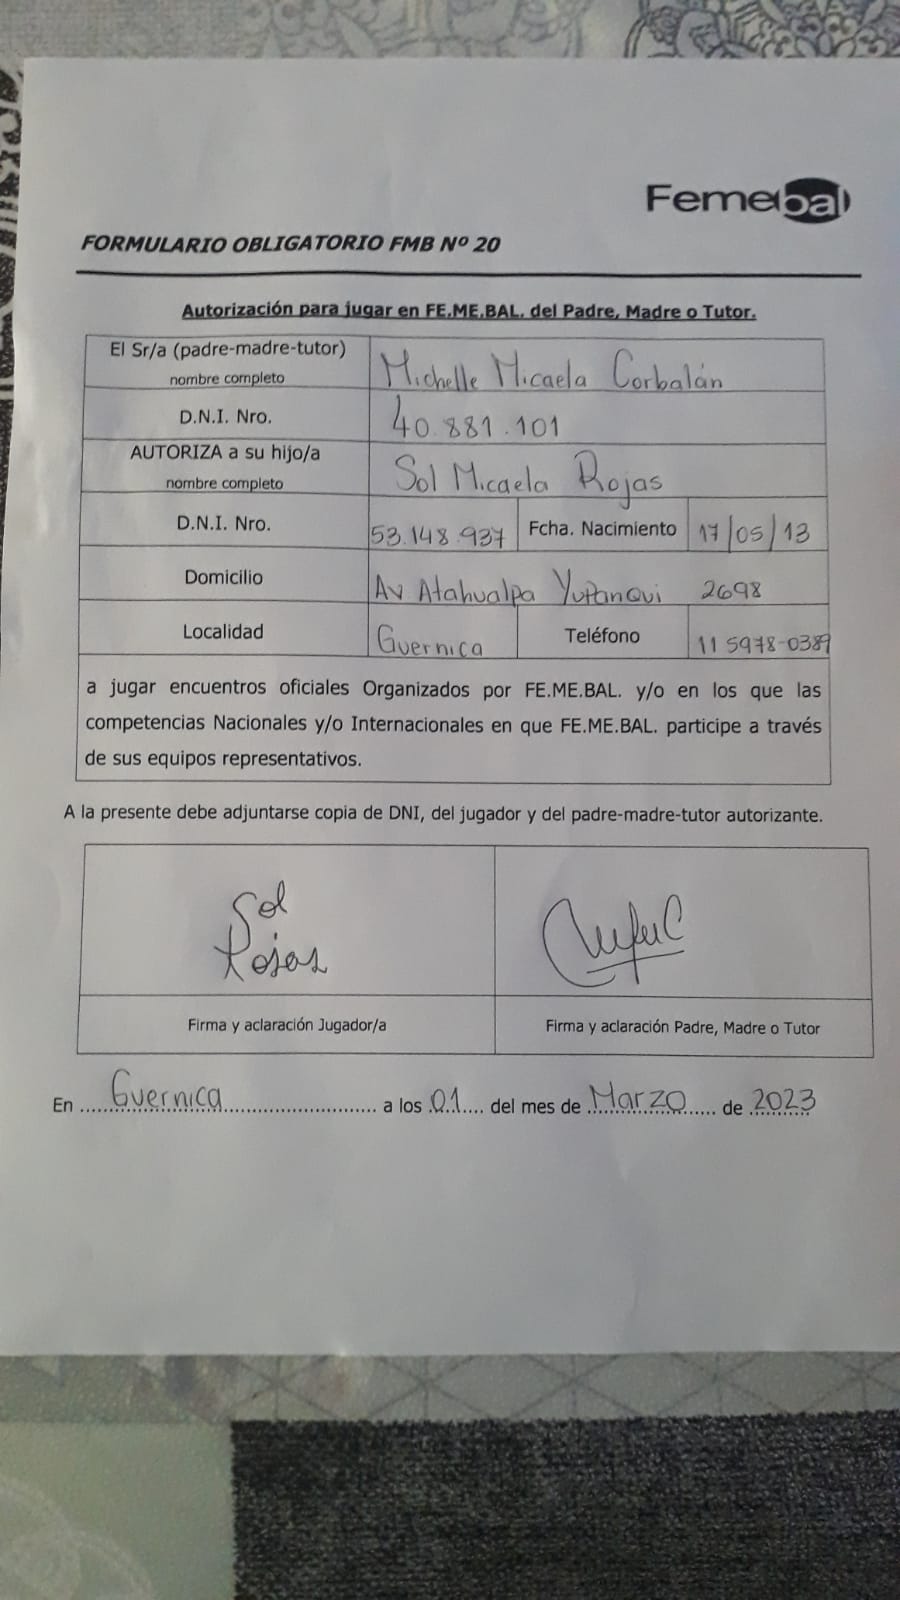 Femebal
FORMULARIO OBLIGATORIO FMB Nº 20
Autorización para jugar en FE.ME.BAL. del Padre, Madre o Tutor.
El Sr/a (padre-madre-tutor)
nombre completo
Michelle Micaela Corbalán
D.N.I. Nro.
40.881.101
AUTORIZA a su hijo/a
nombre completo
Sol Micaela Rojas
D.N.I. Nro.
53.148.937
Fcha. Nacimiento
17/05/13
Domicilio
Av. Atahualpa Yupanqui 2698
Localidad
Guernica
Teléfono
11 5978-0389
a jugar encuentros oficiales Organizados por FE.ME.BAL. y/o en los que las
competencias Nacionales y/o Internacionales en que FE.ME.BAL. participe a través
de sus equipos representativos.
A la presente debe adjuntarse copia de DNI, del jugador y del padre-madre-tutor autorizante.
Sol
Rojas
Firma y aclaración Jugador/a
Firma y aclaración Padre, Madre o Tutor
En Guernica a los 01 del mes de Marzo de 2023